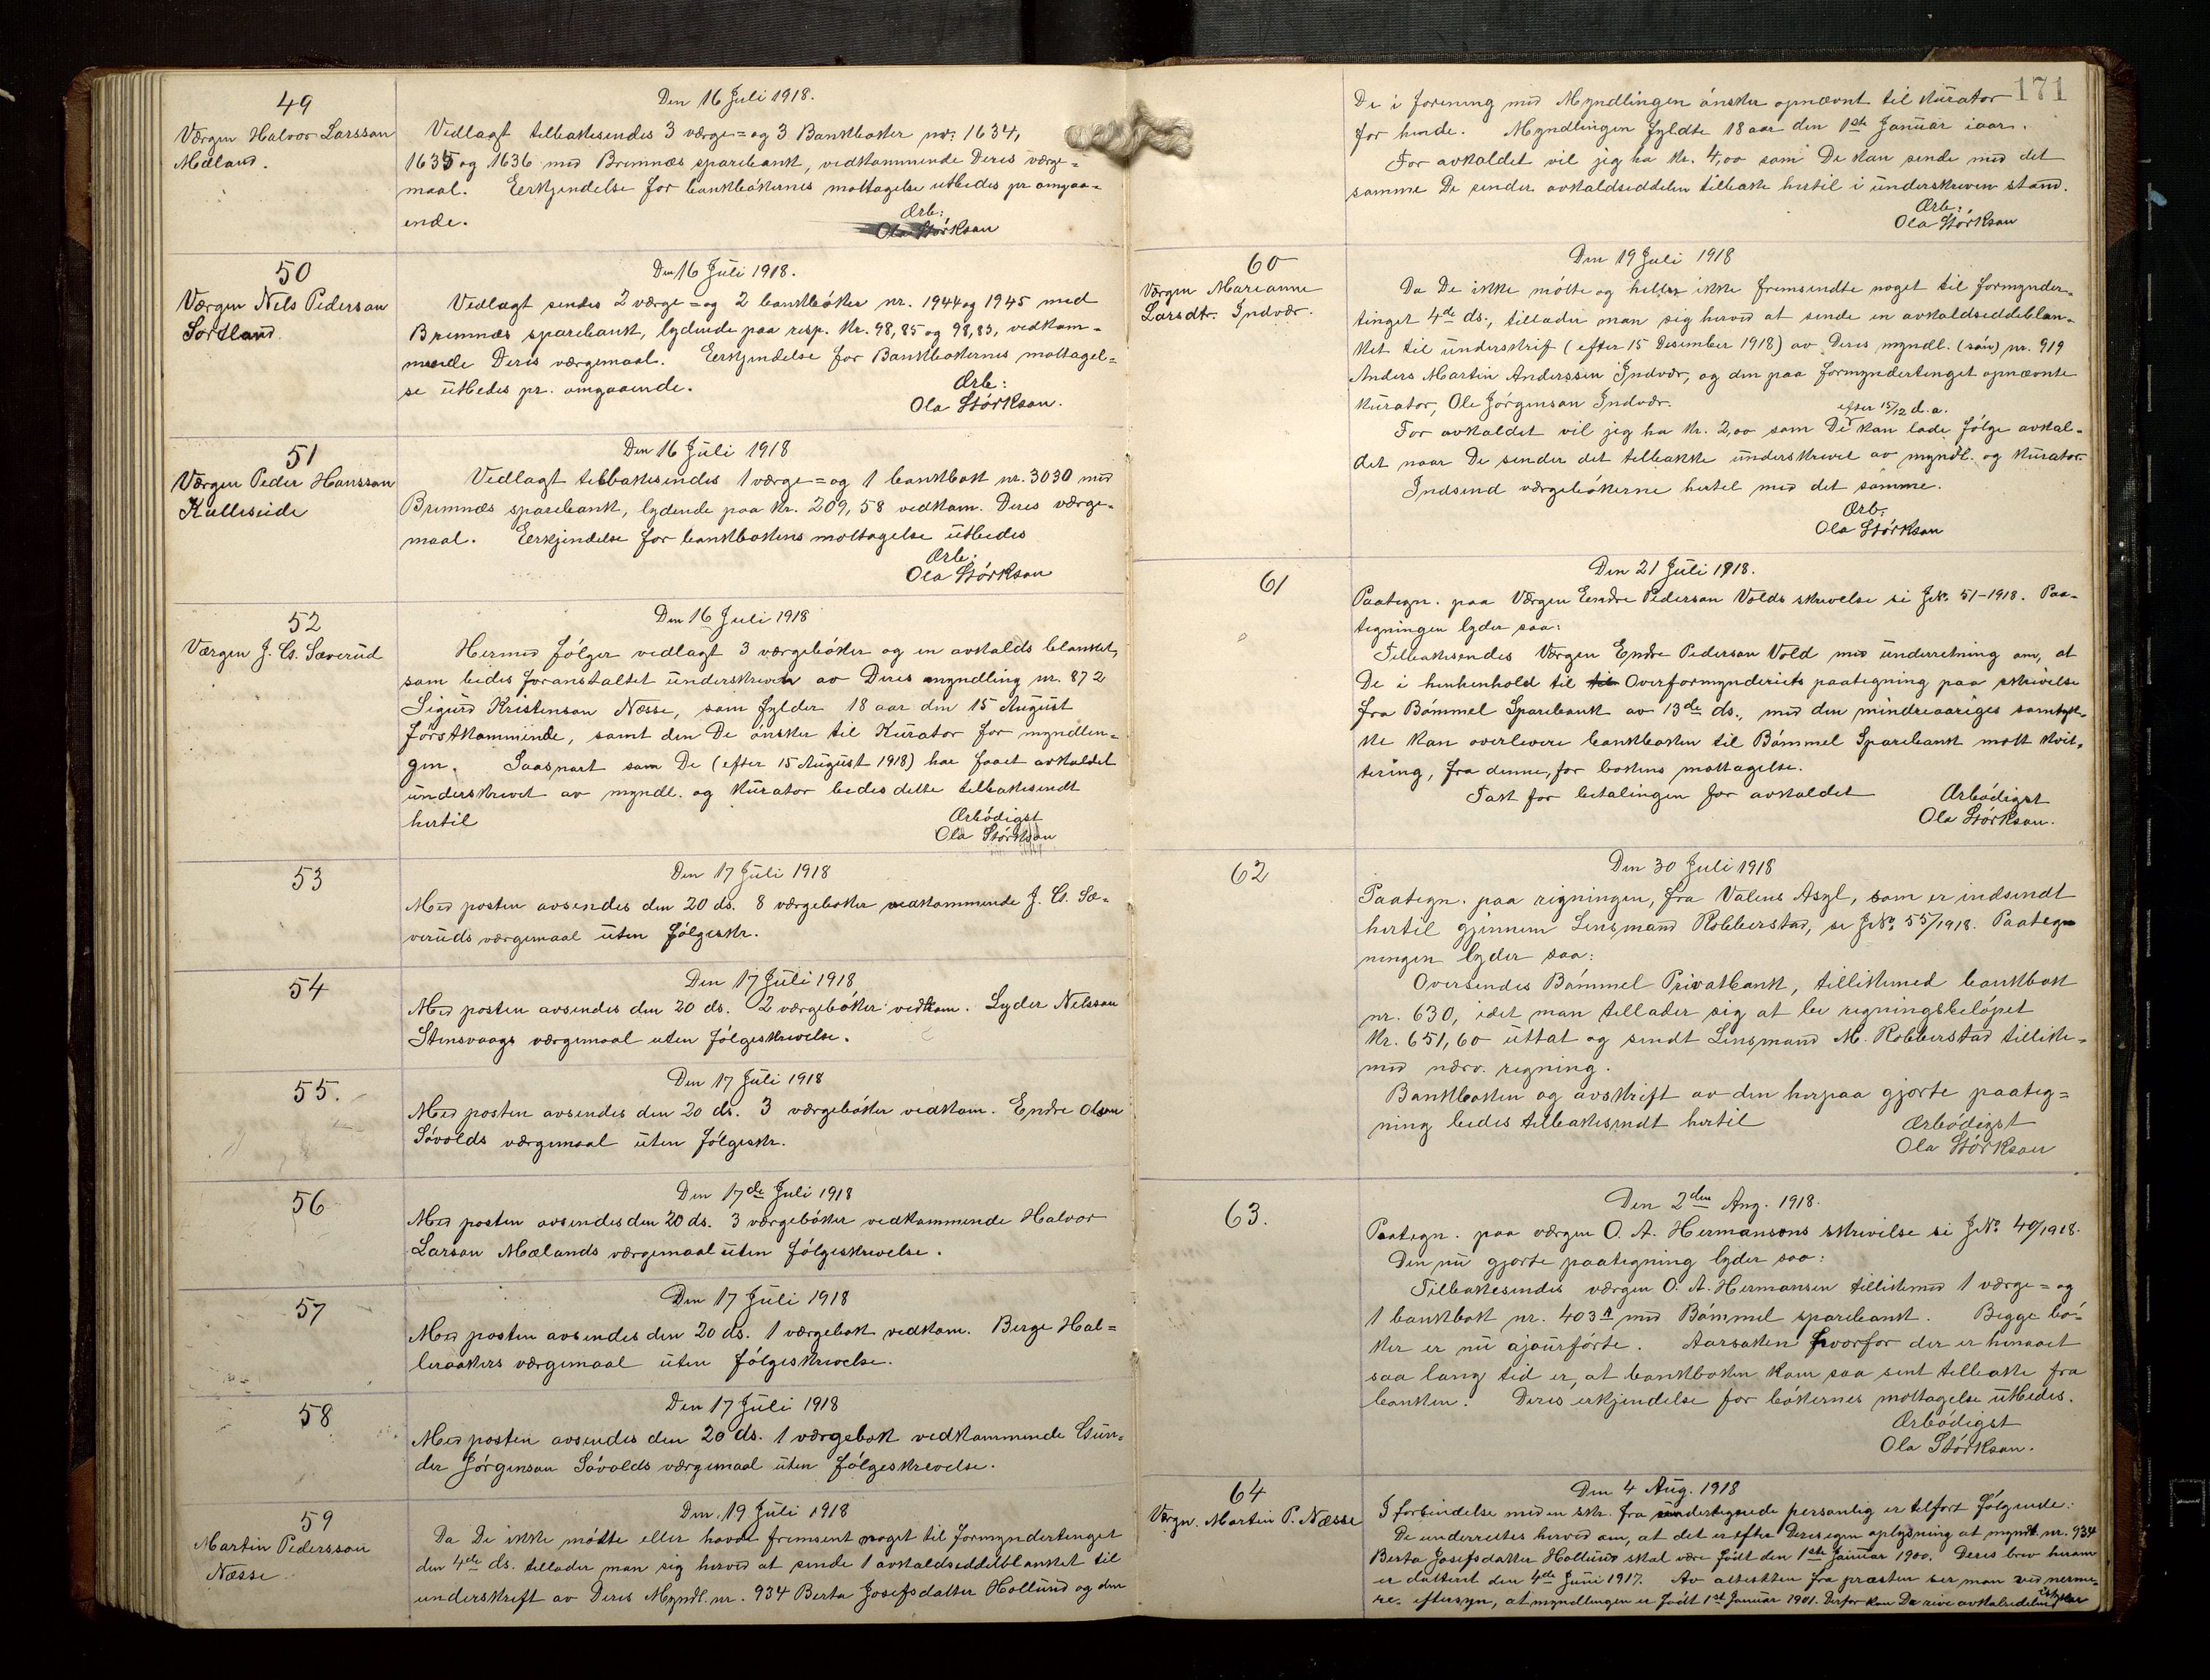 49
Værgen Halvor Larsson
Mæland.
Den 16 Juli 1918.
Vedlagt tilbakesendes 3 værge= og 3 Bankbøker nr. 1634,
1635 og 1636 med Bremnæs sparebank, vedkommende Deres værge=
maal. Eerkjendelse for bankbøkernes mottagelse utbedes pr omgaa=
ende.
Ærb:
Ola Størkson
50
Værgen Nels Pederson
Sortland.
Den 16 Juli 1918.
Vedlagt sendes 2 værge= og 2 bankbøker nr. 1944 og 1945 med
Bremnæs sparebank, lydende paa resp. kr. 98,85 og 98,83, vedkom=
mende Deres værgemaal. Eerkjendelse for Bankbøkernes mottagel=
se utbedes pr. omgaaende.
Ærb:
Ola Størkson.
51
Værgen Peder Hansson
Kulleseide
Den 16 Juli 1918
Vedlagt tilbakesendes 1 værge= og 1 bankbok nr. 3030 med
Bremnæs sparebank, lydende paa kr. 209,58 vedkom. Deres værge=
maal. Eerkjendelse for bankbokens mottagelse utbedes
Ærb.
Ola Størkson
52
Værgen J. G. Sæverud
Den 16 Juli 1918
Hermed følger vedlagt 3 værgebøker og en avkalds blanket,
som bedes foranstaltet underskreven av Deres myndling nr. 872
Sigurd Kristenson Næsse, som fylder 18 aar den 15 August
førstkommende, samt den De ønsker til Kurator for myndlin=
gen. Saasnart som De (efter 15 August 1918) har faaet avkaldet
underskrevet av myndl. og kurator bedes dette tilbakesendt
hertil
Ærbødigst
Ola Størkson
53
Den 17 Juli 1918
Med posten avsendes den 20 ds. 8 værgebøker vedkommende J. G. Sæ=
veruds værgemaal uten følgeskr.
54
Den 17 Juli 1918
Med posten avsendes den 20 ds. 2 værgebøker vedkom. Lyder Nelsson
Stensvaags værgemaal uten følgeskrivelse.
55.
Den 17 Juli 1918
Med posten avsendes den 20 ds. 3 værgebøker vedkom. Endre Olson
Søvolds værgemaal uten følgeskr.
56
Den 17de Juli 1918
Med posten avsendes den 20 ds. 3 værgebøker vedkommende Halvor
Larson Mælands værgemaal uten følgeskrivelse.
57
Den 17 Juli 1918
Med posten avsendes den 20 ds. 1 værgebok vedkom. Berge Hal=
leraakers værgemaal uten følgeskrivelse.
58
Den 17 Juli 1918
Med posten avsendes den 20 ds. 1 værgebok vedkommende Gun=
der Jørgenson Søvolds værgemaal uten følgeskrivelse.
59
Martin Pedersson
Næsse.
Den 19 Juli 1918
Da De ikke møtte eller havde fremsent noget til formyndertinget
den 4de ds. tillader man sig herved at sende 1 avkaldseddelblanket til
underskrift av Deres Myndl. nr. 934 Berta Josefsdatter Hollund og den
171
De i forening med Myndlingen ønsker opnævnt til kurator
for hende. Myndlingen fyldte 18 aar den 1ste Januar iaar.
For avkaldet vil jeg ha kr. 4,00 som De kan sende med det
samme De sender avkaldseddelen tilbake hertil i underskreven stand.
Ærb:
Ola Størkson
60
Værgen Marianne
Larsdtr. Indvær.
Den 19 Juli 1918
Da De ikke møtte og heller ikke fremsendte noget til formynder=
tinget 4de ds., tillader man sig herved at sende en avkaldseddelblan=
ket til underskrif (efter 15 Desember 1918) av Deres myndl. (søn) nr. 919
Anders Martin Anderssen Indvær, og den paa formyndertinget opnævnte
kurator, Ole Jørgenson Indvær.
efter 15/12 d.a.
For avkaldet vil jeg ha kr. 2,00 som De kan lade følge avkal=
det naar De sender det tilbakke underskrevet av myndl. og kurator.
Indsend værgebøkerne hertil med det samme.
Ærb:
Ola Størkson
61
Den 21 Juli 1918.
Paategn. paa Værgen Eendre Pederson Volds skrivelse se J.No. 51-1918. Paa=
tegningen lyder saa:
Tilbakesendes Værgen Endre Pederson Vold med underretning om, at
De i henhenhold til til Overformynderiets paategning paa skrivelse
fra Bømmel Sparebank av 13de ds., med den mindreaariges samtyk=
ke kan overlevere bankboken til Bømmel Sparebank mott kvit=
tering, fra denne, for bokens mottagelse.
Takk for betalingen for avkaldet
Ærbødigst
Ola Størkson.
62
Den 30 Juli 1918
Paategn. paa regningen, fra Valens Asyl, som er indsendt
hertil gjennem Lensmand Robberstad, se J.No. 55/1918. Paateg=
ningen lyder saa:
Oversendes Bømmel Privatbank, tillikemed bankbok
nr. 630, idet man tillader sig at be regningsbeløpet
kr. 651,60 uttat og sendt Lensmand M. Robberstad tillike=
med nærv. regning.
Bankboken og avskrift av den herpaa gjorte paateg=
ning bedes tilbakesendt hertil
Ærbødigst
Ola Størkson
63.
Den 2den Aug. 1918.
Paategn. paa værgen O. A. Hermansons skrivelse se J.No. 40/1918.
Den nu gjorte paategning lyder saa:
Tilbakesendes værgen O. A. Hermansen tillikemed 1 værge= og
1 bankbok nr. 403A med Bømmel sparebank. Begge bø=
ker er nu ajourførte. Aarsaken hvorfor der er hengaaet
saa lang tid er, at bankboken kom saa sent tilbake fra
banken. Deres erkjendelse for bøkernes mottagelse utbedes.
Ærbødigst
Ola Størkson.
64
Værgn. Martin P. Næsse
Den 4 Aug. 1918
I forbindelse med en skr. fra undertegnede personlig er tilført følgende:
De underrettes herved om, at det er efter Deres egen oplysning at myndl. nr. 934
Berta Josefsdatter Hollund skal være født den 1ste Januar 1900. Deres brev herom
er datteret den 4de Juni 1917. Av attestten fra præsten ser man ved nerme=
re eftersyn, at myndlingen er født 1st Januar 1901. Derfor kan De rive avkaldsedelen